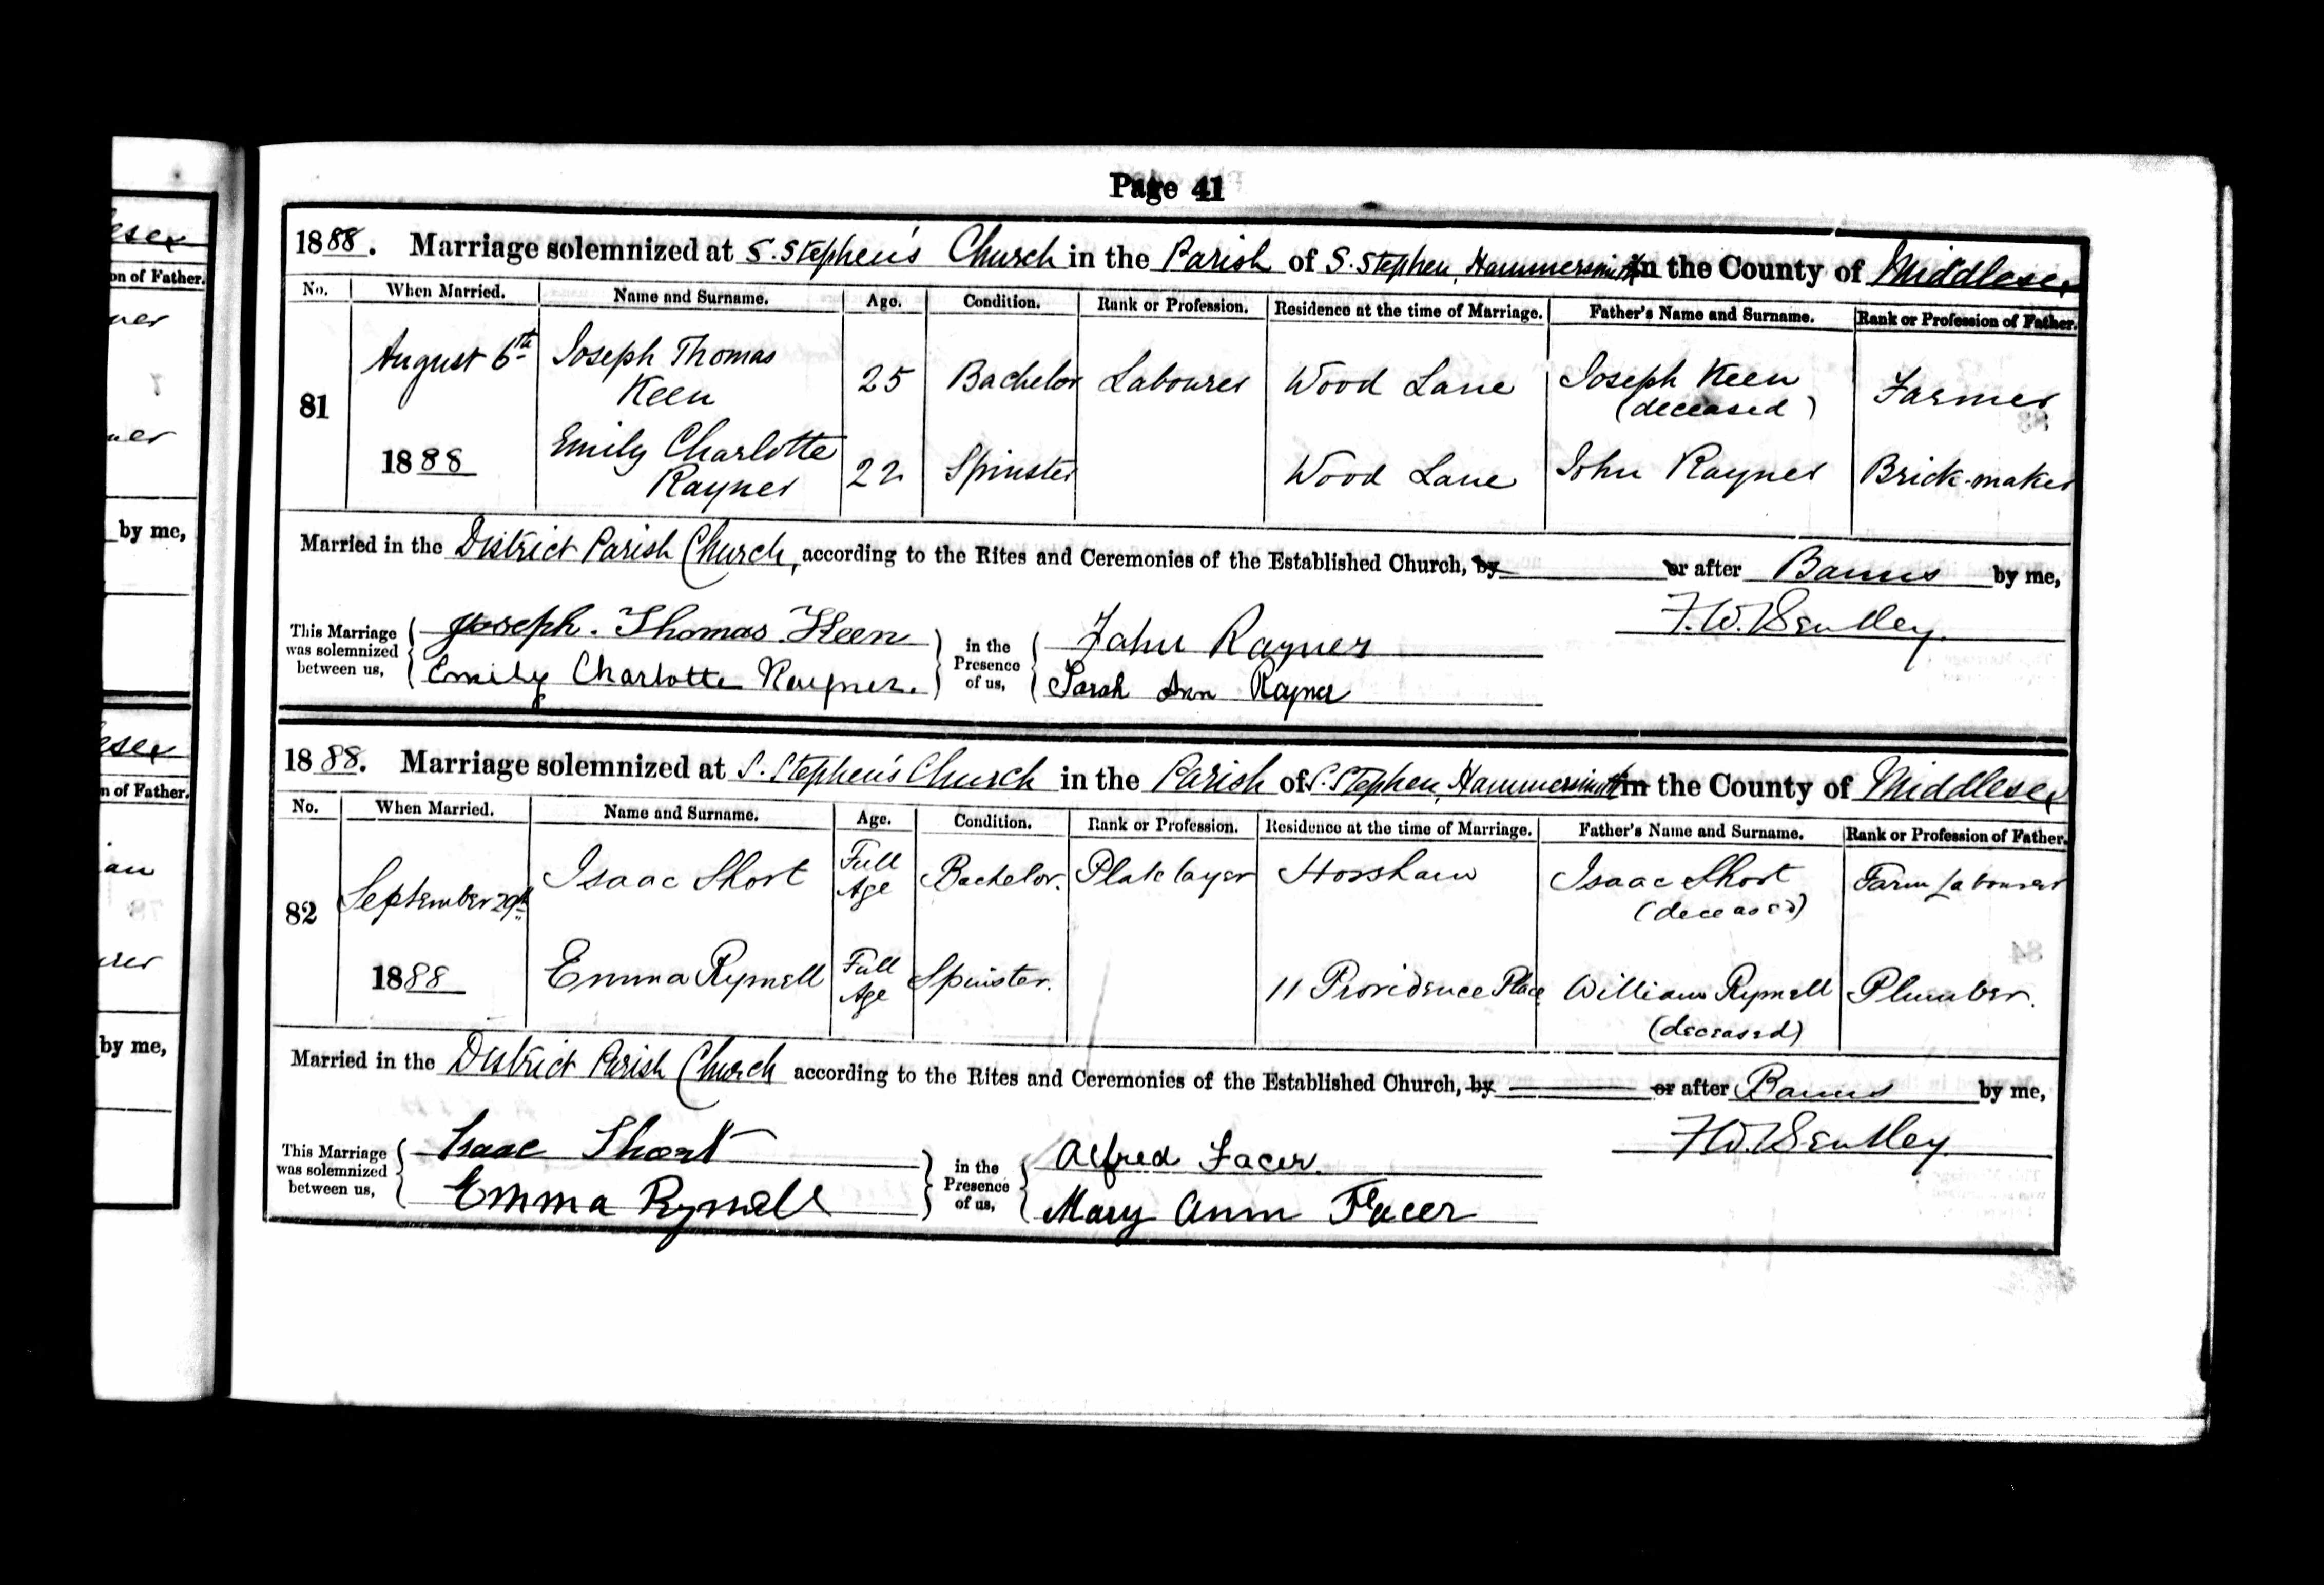 Page 41
1888. Marriage solemnized at S. Stephen's Church in the Parish of S. Stephen, Hammersmith in the County of Middlesex
No. When Married. Name and Surname. Age. Condition. Rank or Profession. Residence at the time of Marriage. Father's Name and Surname. Rank or Profession of Father.
81 August 6th 1888
Joseph Thomas Keen 25 Bachelor Labourer Wood Lane Joseph Keen (deceased) Farmer
Emily Charlotte Rayner 22 Spinster Wood Lane John Rayner Brick-maker
Married in the District Parish Church, according to the Rites and Ceremonies of the Established Church, by or after Banns by me,
F. W. Bentley.
This Marriage was solemnized between us, Joseph. Thomas. Keen in the Presence of us, John Rayner
Emily Charlotte Rayner. Sarah Ann Rayner
1888. Marriage solemnized at S. Stephen's Church in the Parish of S. Stephen, Hammersmith in the County of Middlesex
No. When Married. Name and Surname. Age. Condition. Rank or Profession. Residence at the time of Marriage. Father's Name and Surname. Rank or Profession of Father.
82 September 29th 1888
Isaac Short Full Age Bachelor. Platelayer Horsham Isaac Short (deceased) Farm Labourer
Emma Rymell Full Age Spinster. 11 Providence Place William Rymell (deceased) Plumber.
Married in the District Parish Church according to the Rites and Ceremonies of the Established Church, by or after Banns by me,
F. W. Bentley.
This Marriage was solemnized between us, Isaac Short in the Presence of us, Alfred Facer.
Emma Rymell Mary Ann Facer
on of Father.
by me,
n of Father.
by me,